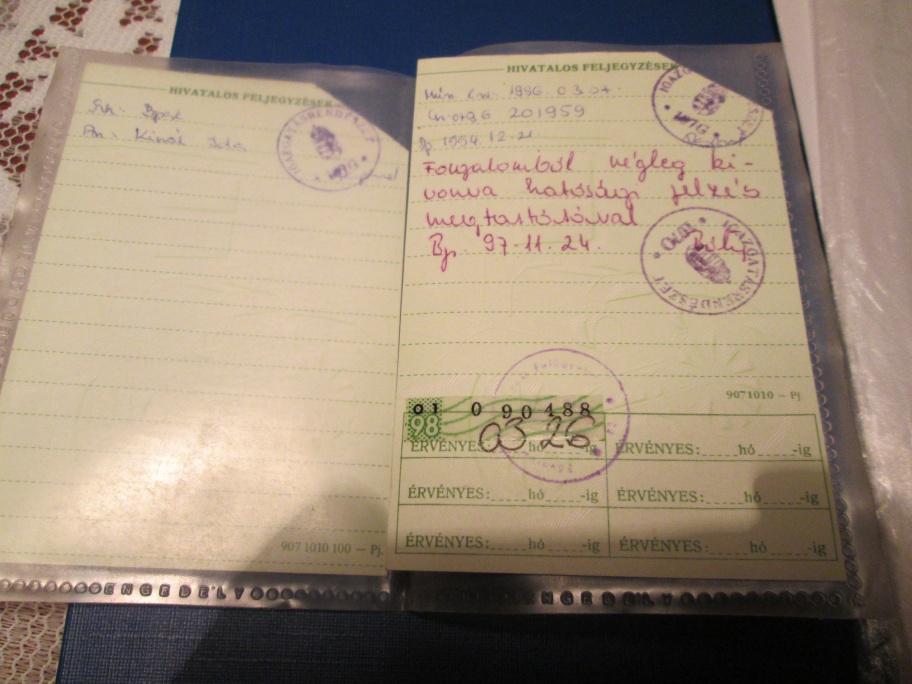 HIVATALOS FELJEGYZÉSEK
Szh: Bpest
An.: Ida
IGAZGATÁSRENDÉSZET
9071010 100 — Pj.
HIVATALOS FELJEGYZÉSEK
1996. 03 07.
201959
Bp 1994. 12. 21
Forgalomból végleg ki-
vonva hatósági jelzés
megtartásával
Bp. 97. 11. 24.
IGAZGATÁSRENDÉSZET
9071010 — Pj
01 0 090488
98 03 26
ÉRVÉNYES: hó -ig ÉRVÉNYES: hó -ig
ÉRVÉNYES: hó -ig ÉRVÉNYES: hó -ig
ÉRVÉNYES: hó -ig ÉRVÉNYES: hó -ig